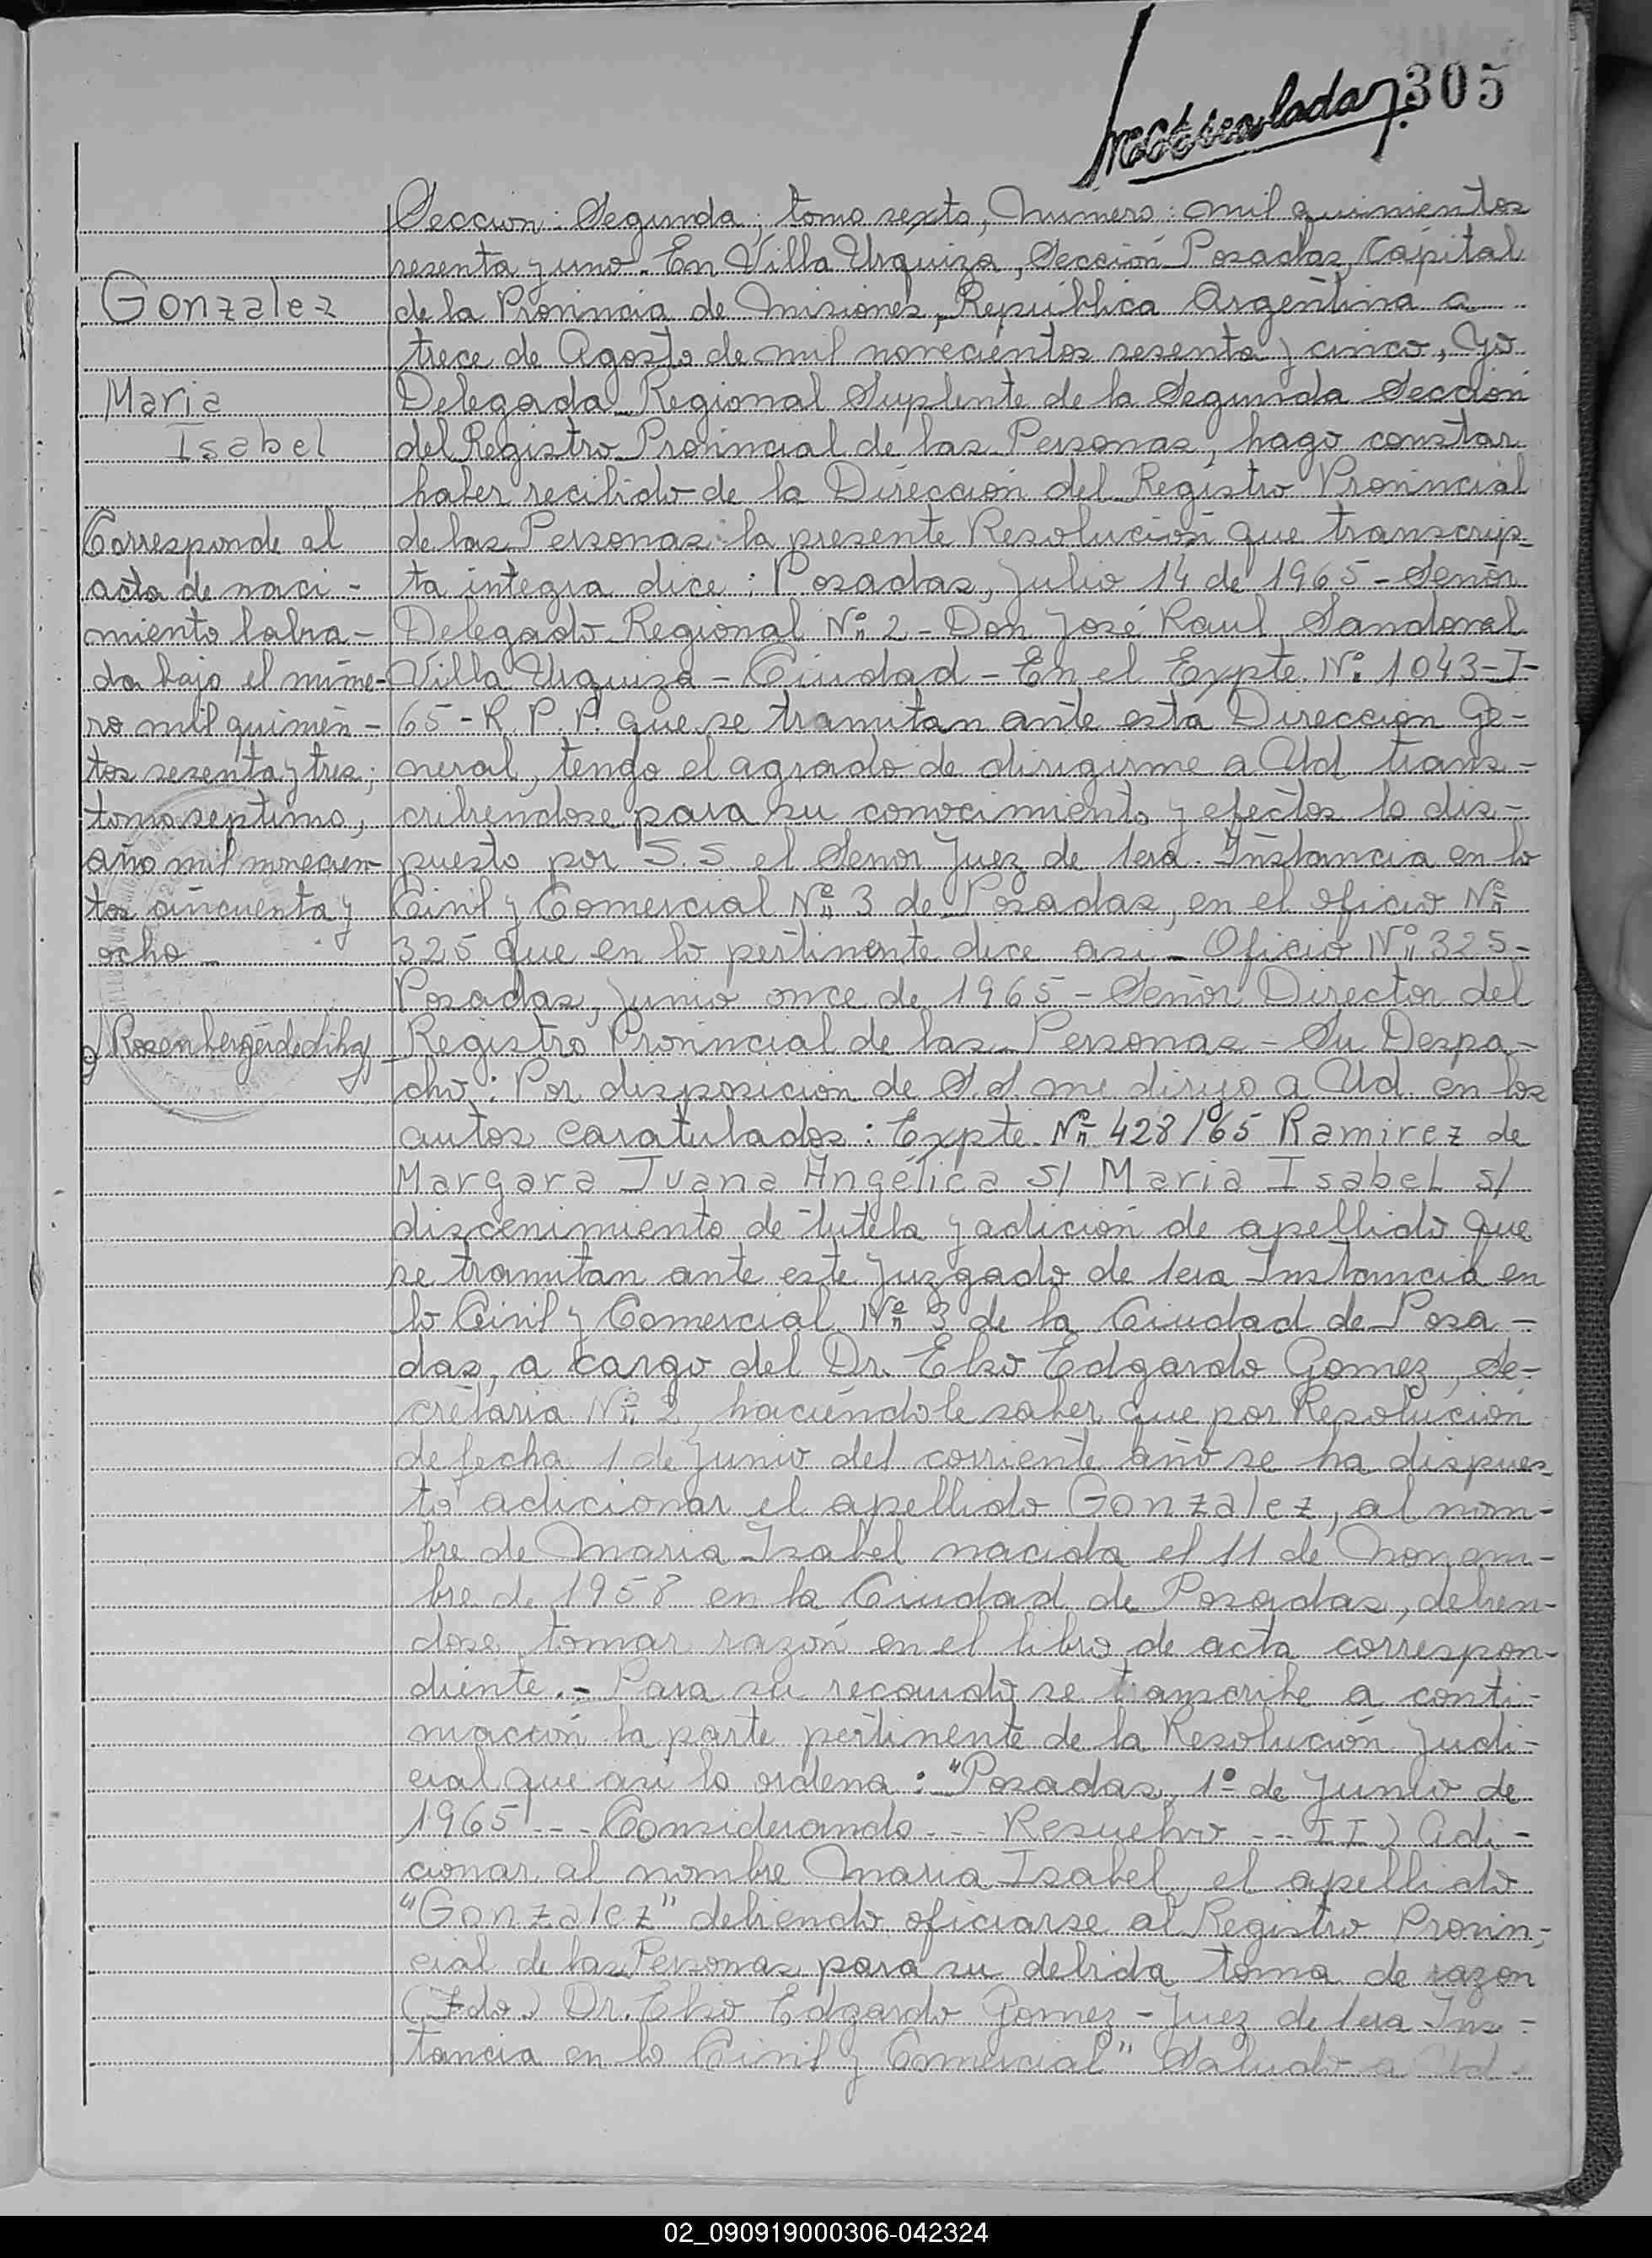 305
Gonzalez
Maria
Isabel
Corresponde al
acta de naci-
miento labra-
da bajo el núme-
ro mil quinien-
tos sesenta y tres;
tomo septimo,
año mil novecien-
tos cincuenta y
ocho_
Seccion: Segunda; tomo sexto, Numero: mil quinientos
sesenta y uno. En Villa Urquiza, Sección Posadas, Capital
de la Provincia de Misiones, República Argentina a
trece de Agosto de mil novecientos sesenta y cinco, Yo
Delegada Regional Suplente de la Segunda Sección
del Registro Provincial de las Personas, hago constar
haber recibido de la Dirección del Registro Provincial
de las Personas la presente Resolución que transcrip-
ta integra dice: Posadas, Julio 14 de 1965 - Señor
Delegado Regional Nº 2 - Don José Raul Sandoval
Villa Urquiza - Ciudad - En el Expte. Nº 1043-J-
65 - R. P. P. que se tramitan ante esta Direccion Ge-
neral, tengo el agrado de dirigirme a Ud trans-
cribiendose para su conocimiento y efectos lo dis-
puesto por S.S el Senor Juez de 1era. Instancia en lo
Civil y Comercial Nº 3 de Posadas, en el oficio Nº
325 que en lo pertinente dice asi - Oficio Nº 325-
Posadas, Junio once de 1965 - Señor Director del
Registro Provincial de las Personas - Su Despa-
cho: Por disposición de S.S. me dirijo a Ud. en los
autos caratulados: Expte. Nº 428/65 Ramirez de
Margara Juana Angélica S/ Maria Isabel s/
discenimiento de tutela y adición de apellido que
se tramitan ante este Juzgado de 1era Instancia en
lo Civil y Comercial Nº 3 de la Ciudad de Posa-
das, a cargo del Dr. Elso Edgardo Gomez, Se-
cretaria Nº 2, haciéndole saber que por Resolución
de fecha 1 de Junio del corriente año se ha dispues-
to adicionar el apellido Gonzalez, al nom-
bre de Maria Isabel nacida el 11 de Noviem-
bre de 1958 en la Ciudad de Posadas, debien-
dose tomar razón en el libro de acta correspon-
diente.- Para su recaudo se transcribe a conti-
nuación la parte pertinente de la Resolución Judi-
cial que asi lo ordena: "Posadas, 1º de Junio de
1965 --- Considerando --- Resuelvo --- II) Adi-
cionar al nombre Maria Isabel el apellido
"Gonzalez" debiendo oficiarse al Registro Provin-
cial de las Personas para su debida toma de razon
(Fdo.) Dr. Elso Edgardo Gomez - Juez de 1era Ins-
tancia en lo Civil y Comercial" Saludo a Ud
02_090919000306-042324